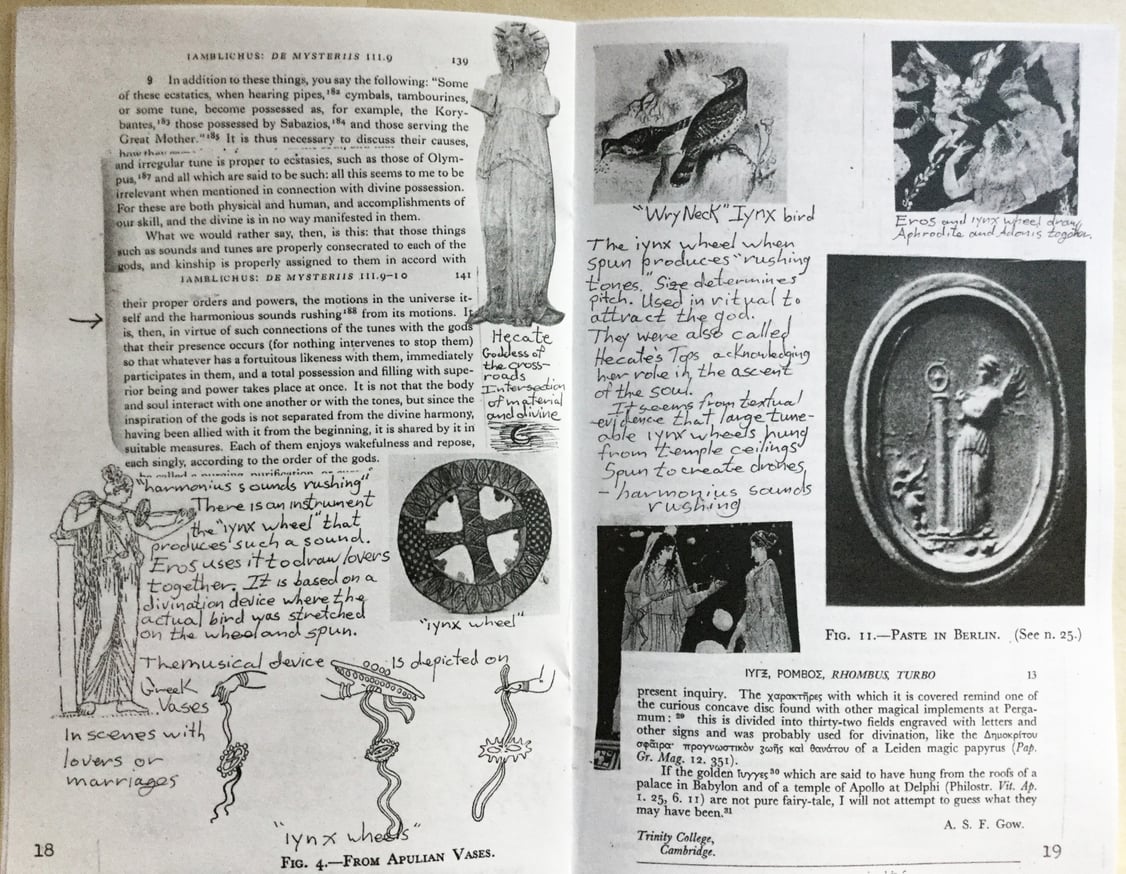 IAMBLICHUS: DE MYSTERIIS III.9 139
9 In addition to these things, you say the following: “Some
of these ecstatics, when hearing pipes,¹⁸² cymbals, tambourines,
or some tune, become possessed as, for example, the Kory-
bantes,¹⁸³ those possessed by Sabazios,¹⁸⁴ and those serving the
Great Mother.”¹⁸⁵ It is thus necessary to discuss their causes,
and irregular tune is proper to ecstasies, such as those of Olym-
pus,¹⁸⁷ and all which are said to be such: all this seems to me to be
irrelevant when mentioned in connection with divine possession.
For these are both physical and human, and accomplishments of
our skill, and the divine is in no way manifested in them.
What we would rather say, then, is this: that those things
such as sounds and tunes are properly consecrated to each of the
gods, and kinship is properly assigned to them in accord with
IAMBLICHUS: DE MYSTERIIS III.9–10 141
their proper orders and powers, the motions in the universe it-
self and the harmonious sounds rushing¹⁸⁸ from its motions. It
is, then, in virtue of such connections of the tunes with the gods
that their presence occurs (for nothing intervenes to stop them)
so that whatever has a fortuitous likeness with them, immediately
participates in them, and a total possession and filling with supe-
rior being and power takes place at once. It is not that the body
and soul interact with one another or with the tones, but since the
inspiration of the gods is not separated from the divine harmony,
having been allied with it from the beginning, it is shared by it in
suitable measures. Each of them enjoys wakefulness and repose,
each singly, according to the order of the gods.
Hecate
Goddess of
the cross-
roads
Intersection
of material
and divine
"harmonius sounds rushing"
There is an instrument
the "iynx wheel" that
produces such a sound.
Eros uses it to draw lovers
together. It is based on a
divination device where the
actual bird was stretched
on the wheel and spun.
"iynx wheel"
The musical device is depicted on
Greek
Vases
In scenes with
lovers or
marriages
"iynx wheels"
FIG. 4.—FROM APULIAN VASES.
18
"WryNeck" Iynx bird
Eros and iynx wheel draw
Aphrodite and Adonis together
The iynx wheel when
spun produces "rushing
tones." Size determines
pitch. Used in ritual to
attract the god.
They were also called
Hecate's Tops acknowledging
her role in the ascent
of the soul.
It seems from textual
evidence that large tune-
able iynx wheels hung
from temple ceilings
Spun to create drones,
- harmonius sounds
rushing
FIG. 11.—PASTE IN BERLIN. (See n. 25.)
ΙΥΓΞ, ΡΟΜΒΟΣ, RHOMBUS, TURBO 13
present inquiry. The χαρακτῆρες with which it is covered remind one of
the curious concave disc found with other magical implements at Perga-
mum:²⁹ this is divided into thirty-two fields engraved with letters and
other signs and was probably used for divination, like the Δημοκρίτου
σφαῖρα· προγνωστικὸν ζωῆς καὶ θανάτου of a Leiden magic papyrus (Pap.
Gr. Mag. 12. 351).
If the golden ἴυγγες³⁰ which are said to have hung from the roofs of a
palace in Babylon and of a temple of Apollo at Delphi (Philostr. Vit. Ap.
1. 25, 6. 11) are not pure fairy-tale, I will not attempt to guess what they
may have been.³¹
A. S. F. GOW.
Trinity College,
Cambridge.
19